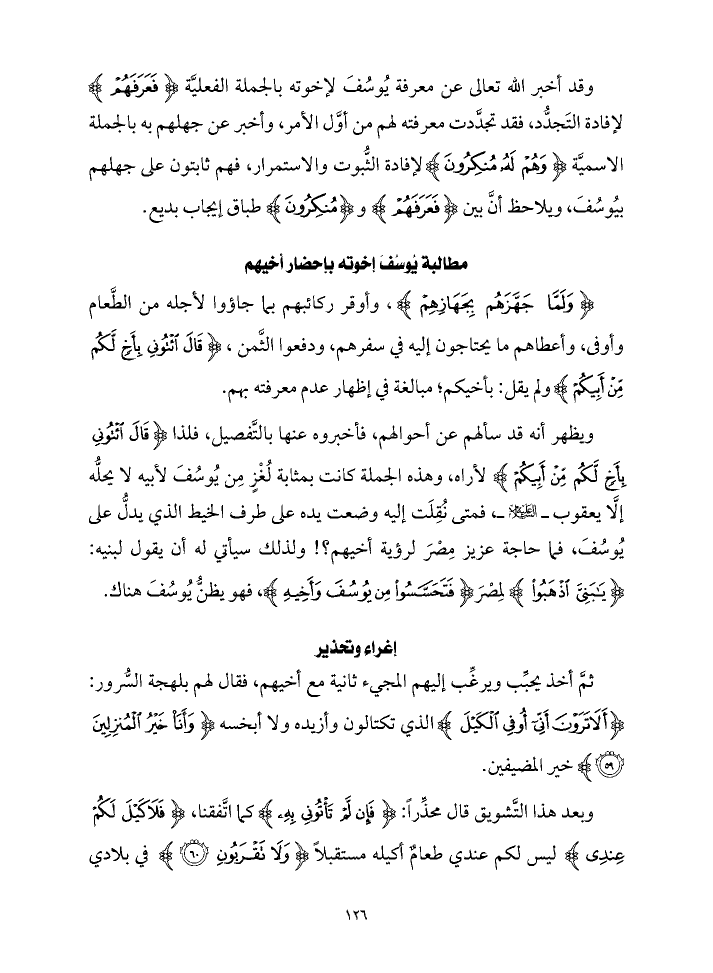 وقد أخبر الله تعالى عن معرفة يُوسُفَ لإخوته بالجملة الفعليَّة ﴿ فَعَرَفَهُمْ ﴾
لإفادة التَجدُّد، فقد تجدَّدت معرفته لهم من أوَّل الأمر، وأخبر عن جهلهم به بالجملة
الاسميَّة ﴿ وَهُمْ لَهُۥ مُنكِرُونَ ﴾ لإفادة الثُّبوت والاستمرار، فهم ثابتون على جهلهم
بيُوسُفَ، ويلاحظ أنَّ بين ﴿ فَعَرَفَهُمْ ﴾ و ﴿ مُنكِرُونَ ﴾ طباق إيجاب بديع.
مطالبة يُوسُفَ إخوته بإحضار أخيهم
﴿ وَلَمَّا جَهَّزَهُم بِجَهَازِهِمْ ﴾، وأوقر ركائبهم بما جاؤوا لأجله من الطَّعام
وأوفى، وأعطاهم ما يحتاجون إليه في سفرهم، ودفعوا الثَّمن ، ﴿ قَالَ ٱئْتُونِي بِأَخٍ لَّكُم
مِّنْ أَبِيكُمْ ﴾ ولم يقل: بأخيكم؛ مبالغة في إظهار عدم معرفته بهم.
ويظهر أنه قد سألهم عن أحوالهم، فأخبروه عنها بالتَّفصيل، فلذا ﴿ قَالَ ٱئْتُونِي
بِأَخٍ لَّكُم مِّنْ أَبِيكُمْ ﴾ لأراه، وهذه الجملة كانت بمثابة لُغْزٍ مِن يُوسُفَ لأبيه لا يحلُّه
إلَّا يعقوب ـ عليه السلام ـ، فمتى نُقِلَت إليه وضعت يده على طرف الخيط الذي يدلُّ على
يُوسُفَ، فما حاجة عزيز مِصْرَ لرؤية أخيهم؟! ولذلك سيأتي له أن يقول لبنيه:
﴿ يَٰبَنِيَّ ٱذْهَبُوا۟ ﴾ لِمصْرَ ﴿ فَتَحَسَّسُوا۟ مِن يُوسُفَ وَأَخِيهِ ﴾، فهو يظنُّ يُوسُفَ هناك.
إغراء وتحذير
ثمَّ أخذ يحبِّب ويرغِّب إليهم المجيء ثانية مع أخيهم، فقال لهم بلهجة السُّرور:
﴿ أَلَا تَرَوْنَ أَنِّيٓ أُوفِي ٱلْكَيْلَ ﴾ الذي تكتالون وأزيده ولا أبخسه ﴿ وَأَنَا۠ خَيْرُ ٱلْمُنزِلِينَ
٥٩ ﴾ خير المضيفين.
وبعد هذا التَّشويق قال محذِّراً: ﴿ فَإِن لَّمْ تَأْتُونِي بِهِۦ ﴾ كما اتَّفقنا، ﴿ فَلَا كَيْلَ لَكُمْ
عِندِى ﴾ ليس لكم عندي طعامٌ أكيله مستقبلاً ﴿ وَلَا تَقْرَبُونِ ٦٠ ﴾ في بلادي
١٢٦